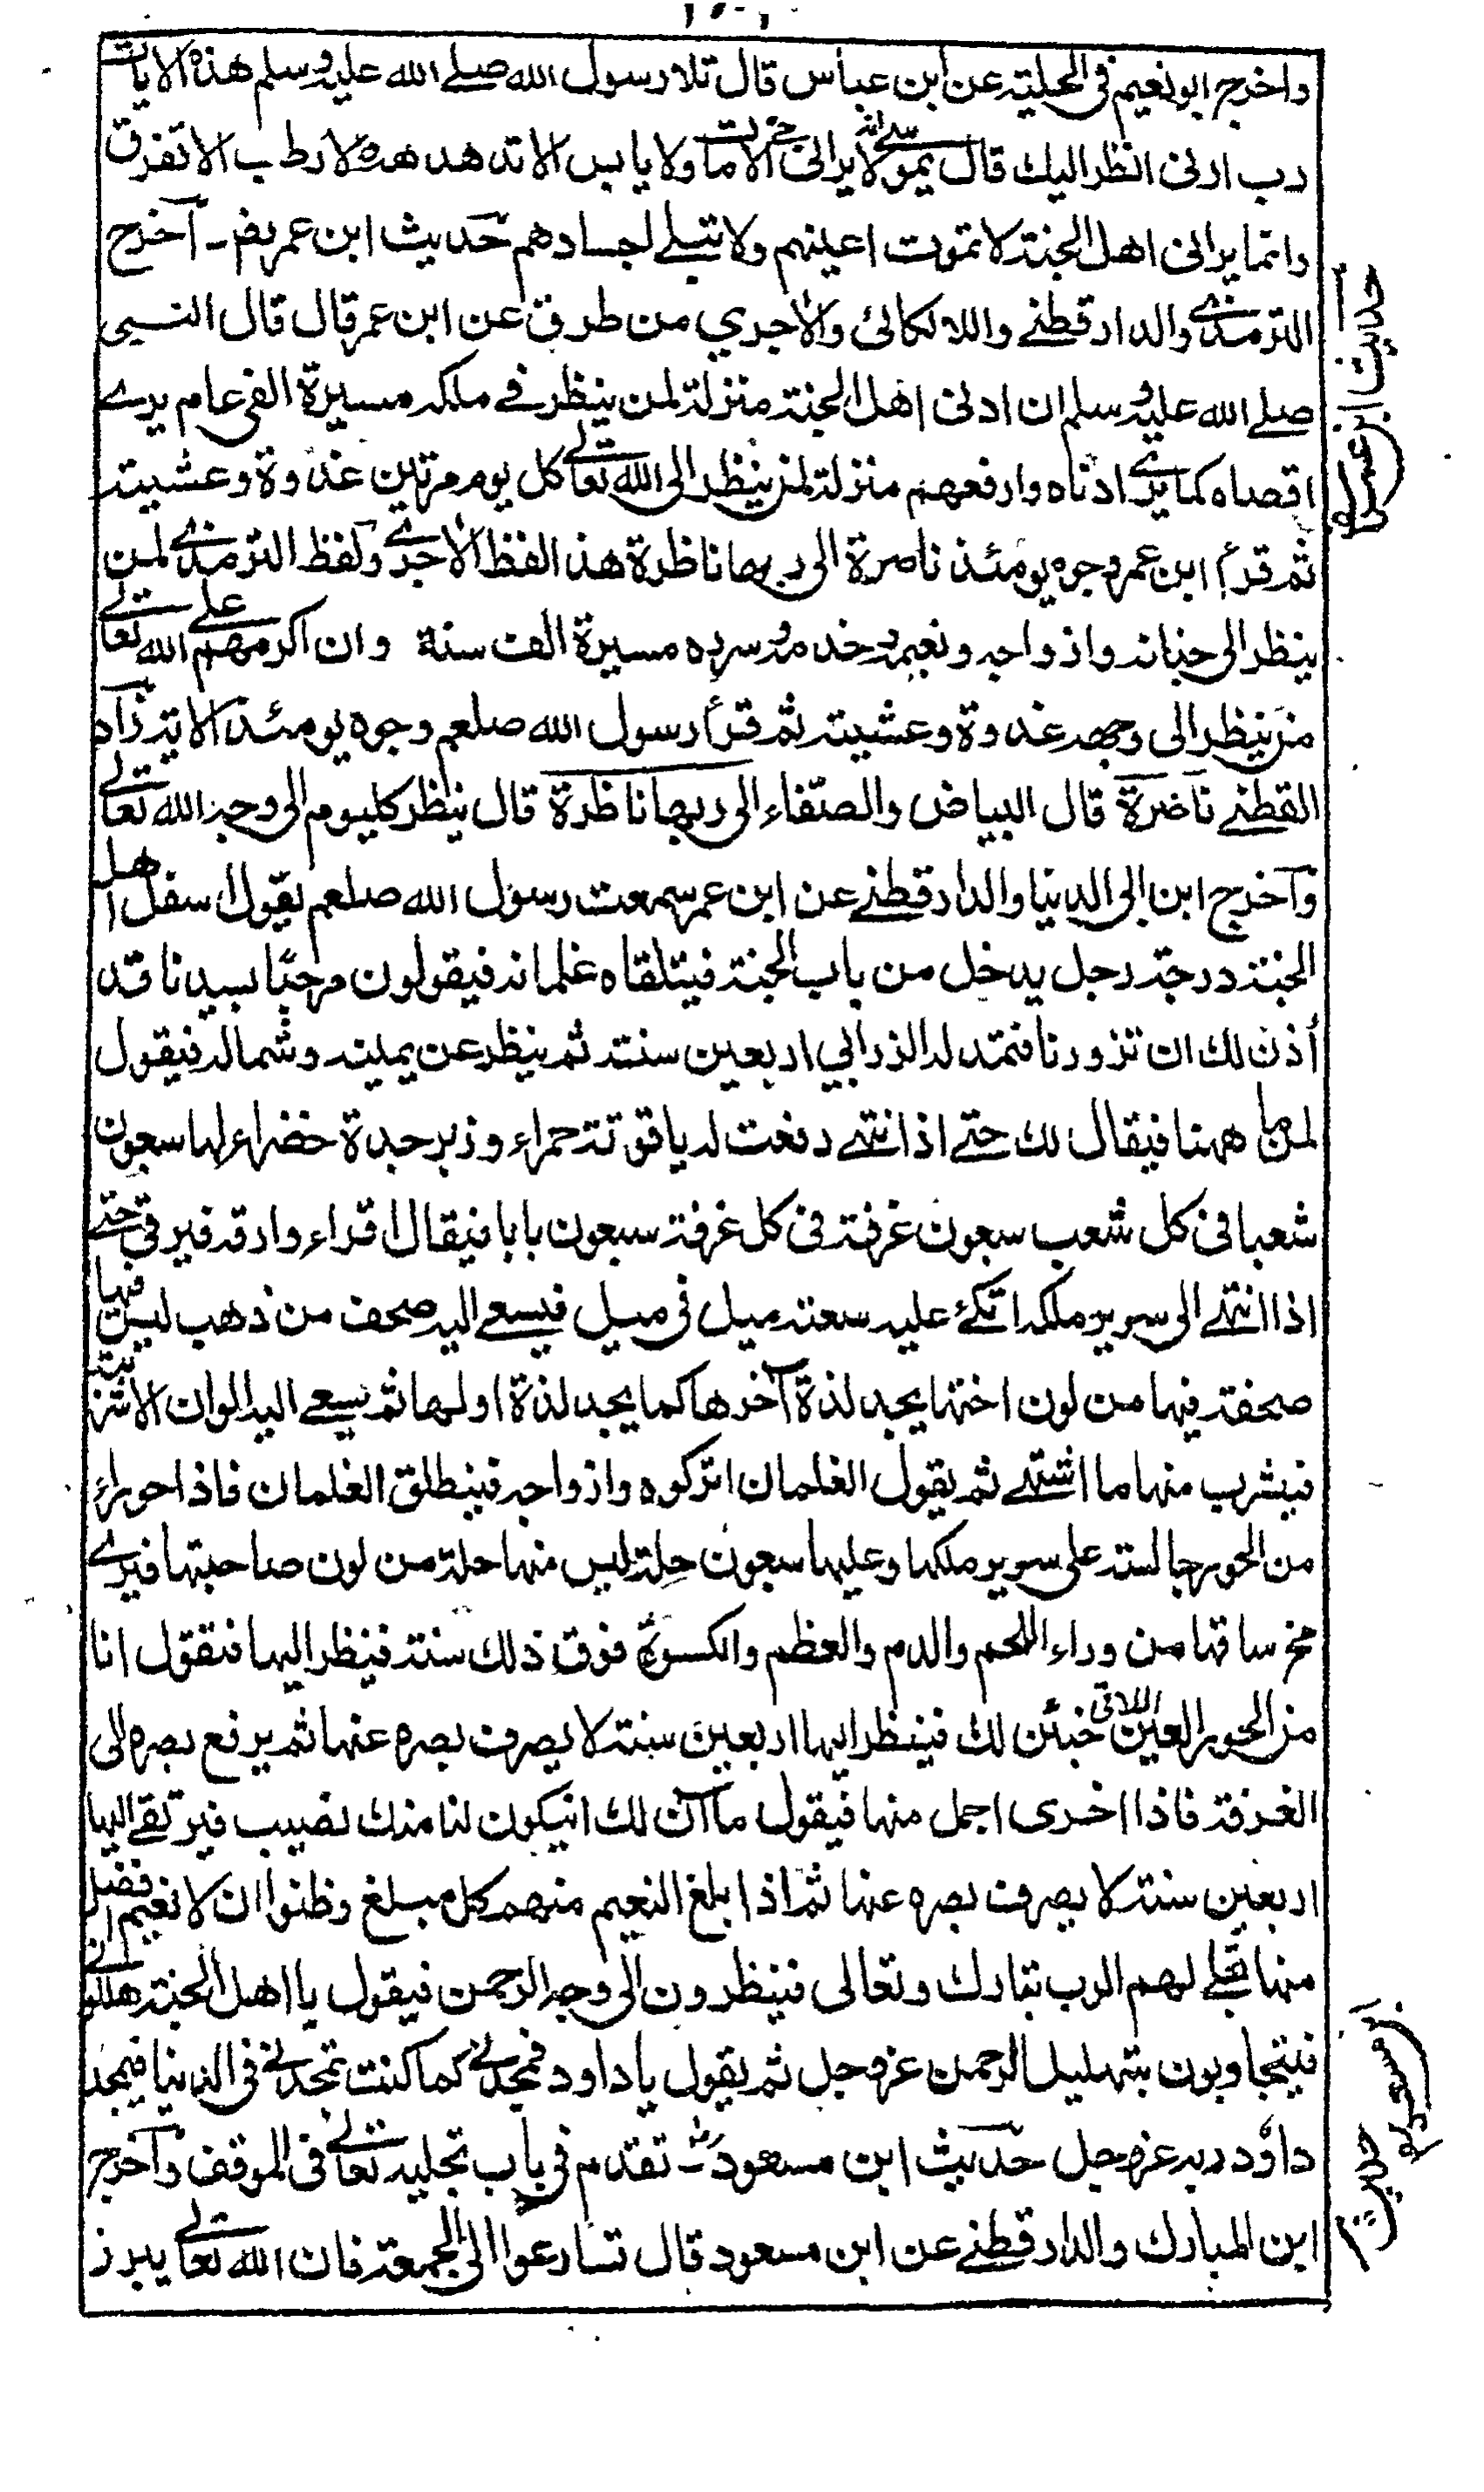 واخرج ابو نعيم فى الحلية عن ابن عباس قال تلا رسول الله صلے الله عليه وسلم هذه الايات
رب ارنى انظر اليك قال يموسے انه لا يرانى حى الا مات ولا يابس الا تدهده ولا رطب الا تفرق
وانما يرانى اهل الجنة لا تموت اعينهم ولا تبلے اجسادهم حديث ابن عمر رض ـ اخرج
الترمذے والدارقطنے واللالكائى والاجري من طرق عن ابن عمر قال قال النبى
صلے الله عليه وسلم ان ادنى اهل الجنة منزلة لمن ينظر فے ملكه مسيرة الفى عام يرے
اقصاه كما يرے ادناه وارفعهم منزلة لمن ينظر الى الله تعالے كل يوم مرتين غدوة وعشية
ثم قرأ ابن عمر وجوه يومئذ ناضرة الى ربها ناظرة هذا لفظ الاجرے ولفظ الترمذے لمن
ينظر الى جنانه وازواجه ونعيمه وخدمه وسرره مسيرة الف سنة وان اكرمهم علے الله تعالے
من ينظر الى وجهه غدوة وعشية ثم قرأ رسول الله صلعم وجوه يومئذ الاية زاد
القطنے ناضرة قال البياض والصفاء الى ربها ناظرة قال ينظر كليوم الى وجه الله تعالے
واخرج ابن ابى الدنيا والدارقطنے عن ابن عمر سمعت رسول الله صلعم يقول اسفل اهل
الجنة درجة رجل يدخل من باب الجنة فيتلقاه غلمانه فيقولون مرحبا بسيدنا قد
أذن لك ان تزورنا فتمد له الزرابي اربعين سنة ثم ينظر عن يمينه وشماله فيقول
لمن ما ههنا فيقال لك حتے اذا انتهے رفعت له ياقوتة حمراء وزبرجدة خضراء لها سبعون
شعبا فى كل شعب سبعون غرفة فى كل غرفة سبعون بابا فيقال اقراء وارقه فيرقى حتے
اذا انتهے الى سرير ملكه اتكئ عليه سعته ميل فى ميل فيسعے اليه صحف من ذهب ليس فيها
صحفة فيها من لون اختها يجد لذة آخرها كما يجد لذة اولها ثم يسعے اليه الوان الاشربة
فيشرب منها ما اشتهے ثم يقول الغلمان اتركوه وازواجه فينطلق الغلمان فاذا حوراء
من الحور جالسة على سرير ملكها وعليها سبعون حلة ليس منها حلة من لون صاحبتها فيرے
مخ ساقها من وراء اللحم والدم والعظم والكسوة فوق ذلك سنة فينظر اليها فتقول انا
من الحور العين اللاتى خبئن لك فينظر اليها اربعين سنة لا يصرف بصره عنها ثم يرفع بصره الى
الغرفة فاذا اخرى اجمل منها فيقول ما آن لك انيكون لنا منك نصيب فيرتقے اليها
اربعين سنة لا يصرف بصره عنها ثم اذا بلغ النعيم منهم كل مبلغ وظنوا ان لا نعيم افضل
منها تجلے لهم الرب تبارك وتعالى فينظرون الى وجه الرحمن فيقول يا اهل الجنة هللونى
فيتجاوبون بتهليل الرحمن عزوجل ثم يقول يا داود فمجدنے كما كنت تمجدنے فى الدنيا فيمجد
داؤد ربه عزوجل حديث ابن مسعود رض ـ تقدم فى باب تجليه تعالے فى الموقف واخرج
ابن المبارك والدارقطنے عن ابن مسعود قال تسارعوا الى الجمعة فان الله تعالے يبرز
حديث ابن عمر رض
حديث ابن مسعود رض